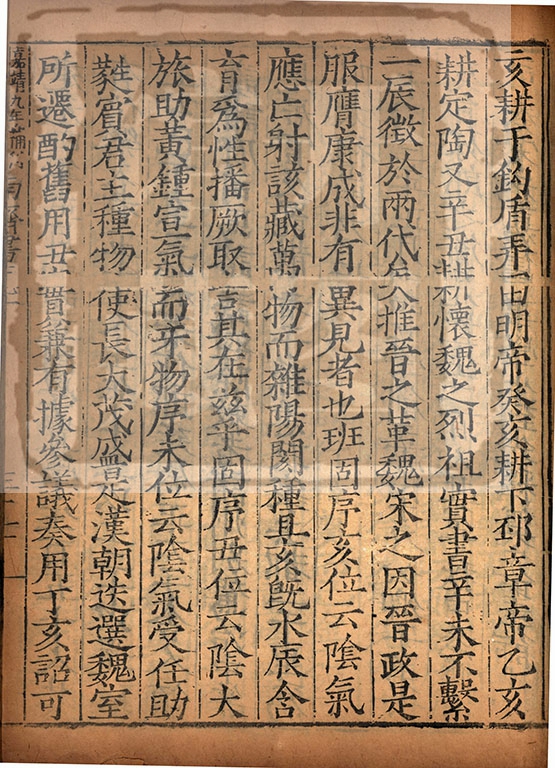 亥耕于鉤盾弄田明帝癸亥耕下邳章帝乙亥
耕定陶又辛丑耕懷魏之烈祖實書辛未不繫
一辰徵於兩代矣推晉之革魏宋之因晉政是
服膺康成非有異見者也班固序亥位云陰氣
應亡射該藏萬物而雜陽閡種且亥旣水辰含
育爲性播厥取吉其在兹乎固序丑位云陰大
旅助黃鍾宣氣而牙物序未位云陰氣受任助
蕤賓君主種物使長大茂盛是漢朝迭選魏室
所遷酌舊用丑實兼有據參議奏用丁亥詔可
嘉靖九年補